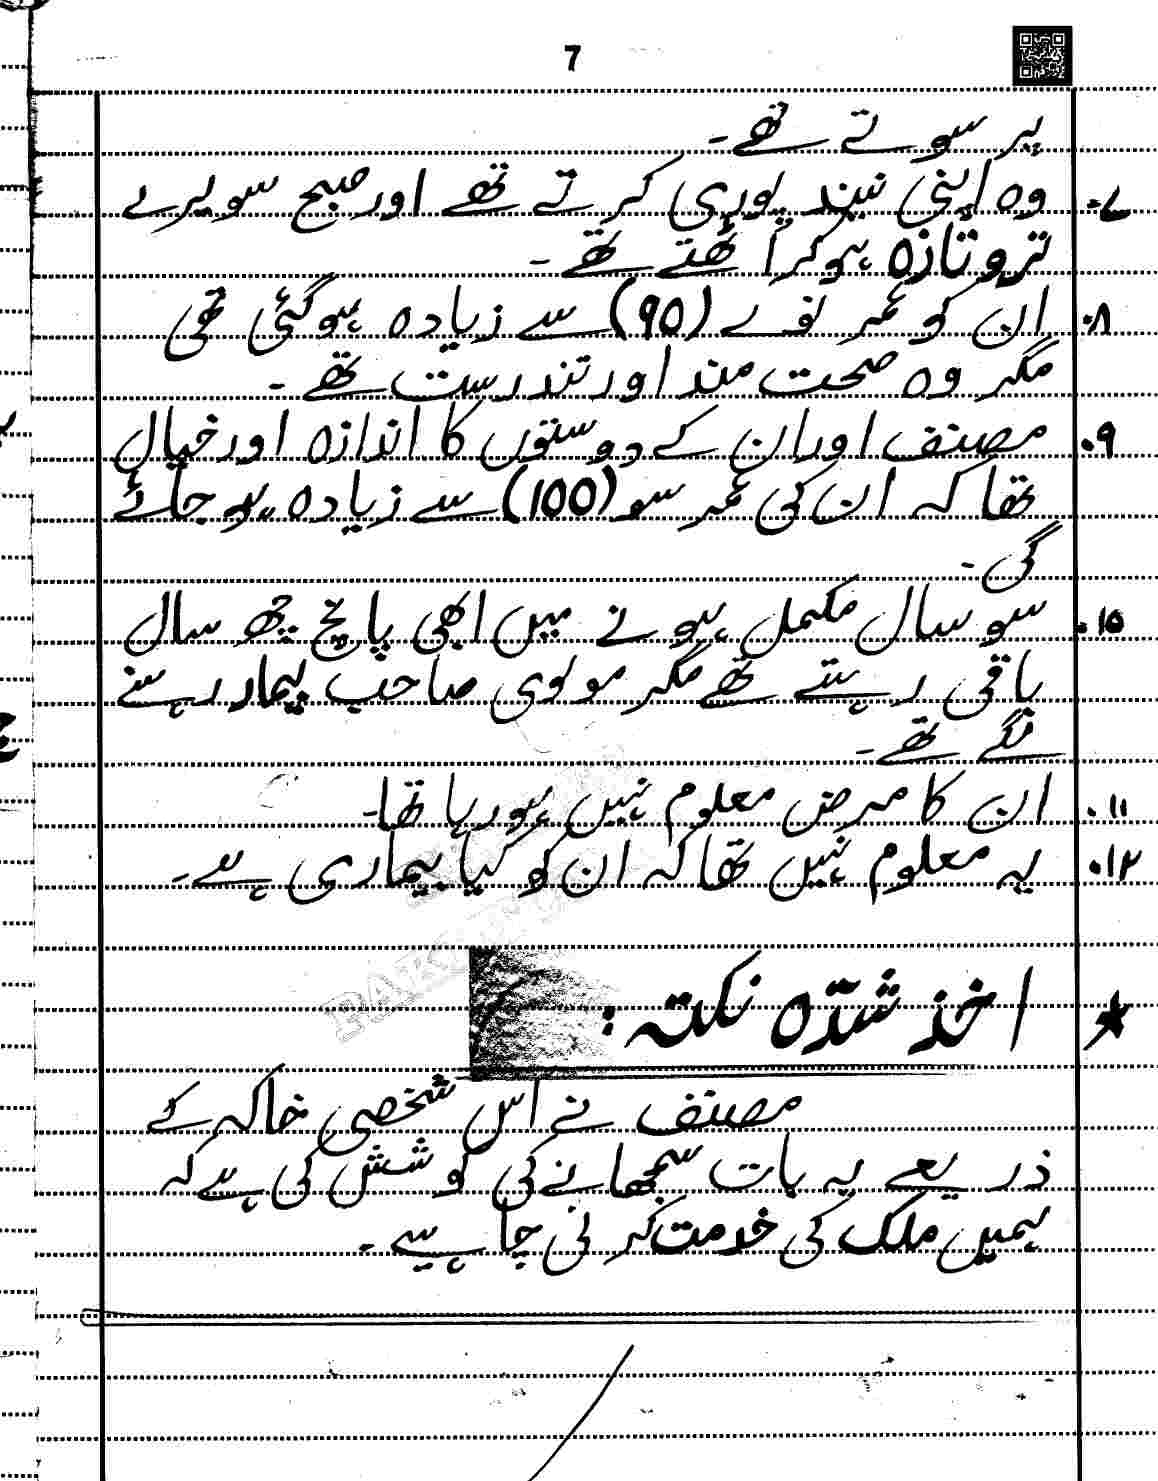 7
پر سوتے تھے۔
۷۔ وہ اپنی نیند پوری کرتے تھے اور صبح سویرے
تروتازہ ہوکر اٹھتے تھے۔
۸۔ ان کو عمر نوے (90) سے زیادہ ہوگئی تھی
مگر وہ صحت مند اور تندرست تھے۔
۹۔ مصنف اور ان کے دوستوں کا اندازہ اور خیال
تھا کہ ان کی عمر سو (100) سے زیادہ ہو جائے
گی۔
۱۰۔ سو سال مکمل ہونے میں ابھی پانچ چھ سال
باقی رہتے تھے مگر مولوی صاحب بیمار رہنے
لگے تھے۔
۱۱۔ ان کا مرض معلوم نہیں ہورہا تھا۔
۱۲۔ یہ معلوم نہیں تھا کہ ان کو کیا بیماری ہے۔
★ اخذ شدہ نکتہ:
مصنف نے اس شخصی خاکہ کے
ذریعے یہ بات سمجھانے کی کوشش کی ہے کہ
ہمیں ملک کی خدمت کرنی چاہیے۔